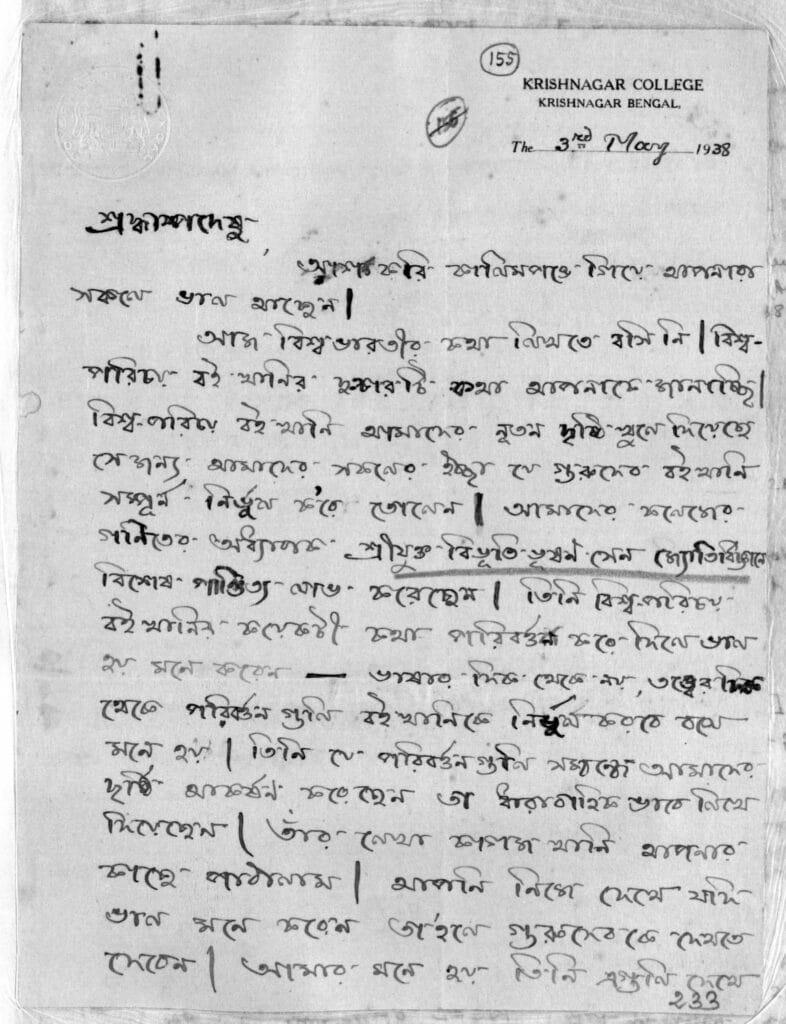 155
KRISHNAGAR COLLEGE
KRISHNAGAR BENGAL.
The 3rd May 1938
শ্রদ্ধাস্পদেষু
আশা করি কালিমপঙে গিয়ে আপনারা
সকলে ভাল আছেন।
আজ বিশ্বভারতীর কথা লিখতে বসি নি। বিশ্ব-
পরিচয় বইখানির দু'চারটি কথা আপনাকে জানাচ্ছি।
বিশ্ব-পরিচয় বইখানি আমাদের নূতন দৃষ্টি খুলে দিয়েছে
সেজন্য আমাদের সকলের ইচ্ছা যে গুরুদেব বইখানি
সম্পূর্ণ নির্ভুল ক'রে তোলেন। আমাদের কলেজের
গণিতের অধ্যাপক শ্রীযুক্ত বিভূতি ভূষণ সেন জ্যোতির্বিজ্ঞানে
বিশেষ পাণ্ডিত্য লাভ করেছেন। তিনি বিশ্ব-পরিচয়
বইখানির কয়েকটী কথা পরিবর্ত্তন করে দিলে ভাল
হয় মনে করেন — ভাষার দিক থেকে নয়, তত্ত্বের দিক
থেকে পরিবর্ত্তনগুলি বইখানিকে নির্ভুল করবে বলে
মনে হয়। তিনি যে পরিবর্ত্তনগুলি সম্বন্ধে আমাদের
দৃষ্টি আকর্ষণ করেছেন তা ধারাবাহিক ভাবে লিখে
দিয়েছেন। তাঁর লেখা কাগজ খানি আপনার
কাছে পাঠালাম। আপনি নিজে দেখে যদি
ভাল মনে করেন তা'হলে গুরুদেবকে দেখতে
দেবেন। আমার মনে হয় তিনি এগুলি দেখে
233